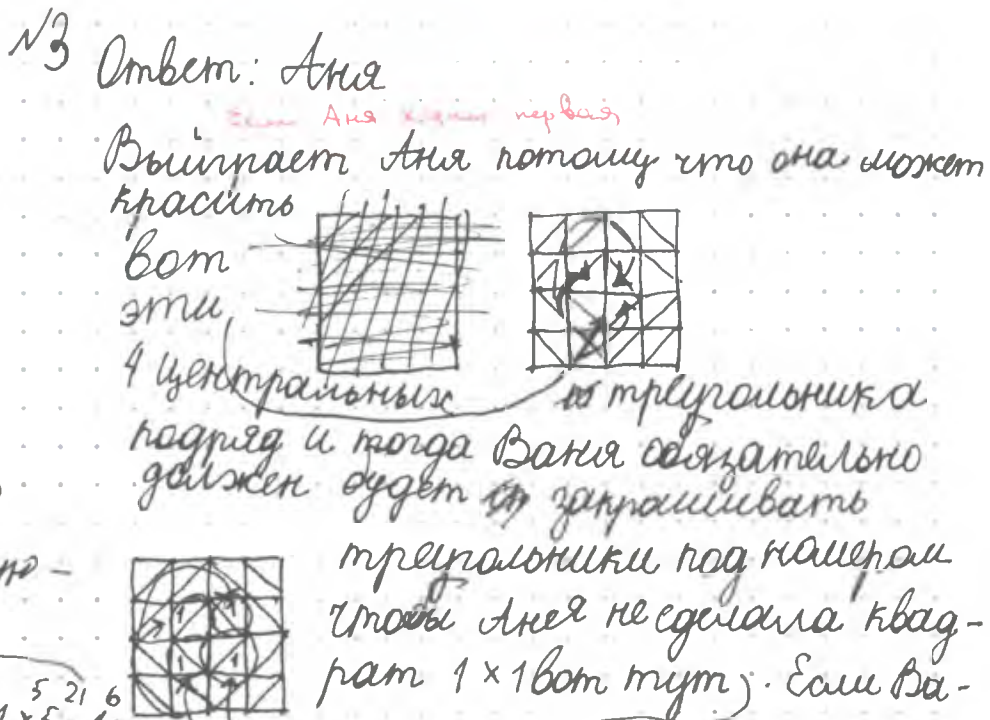 №3 Ответ: Аня
Если Аня ходит первая
Выиграет Аня потому что она может
красить
вот
эти
4 центральных треугольника
подряд и тогда Ваня обязательно
должен будет закрашивать
треугольники под номером
1 чтобы Аня не сделала квад-
рат 1×1 вот тут). Если Ва-
5 21 6